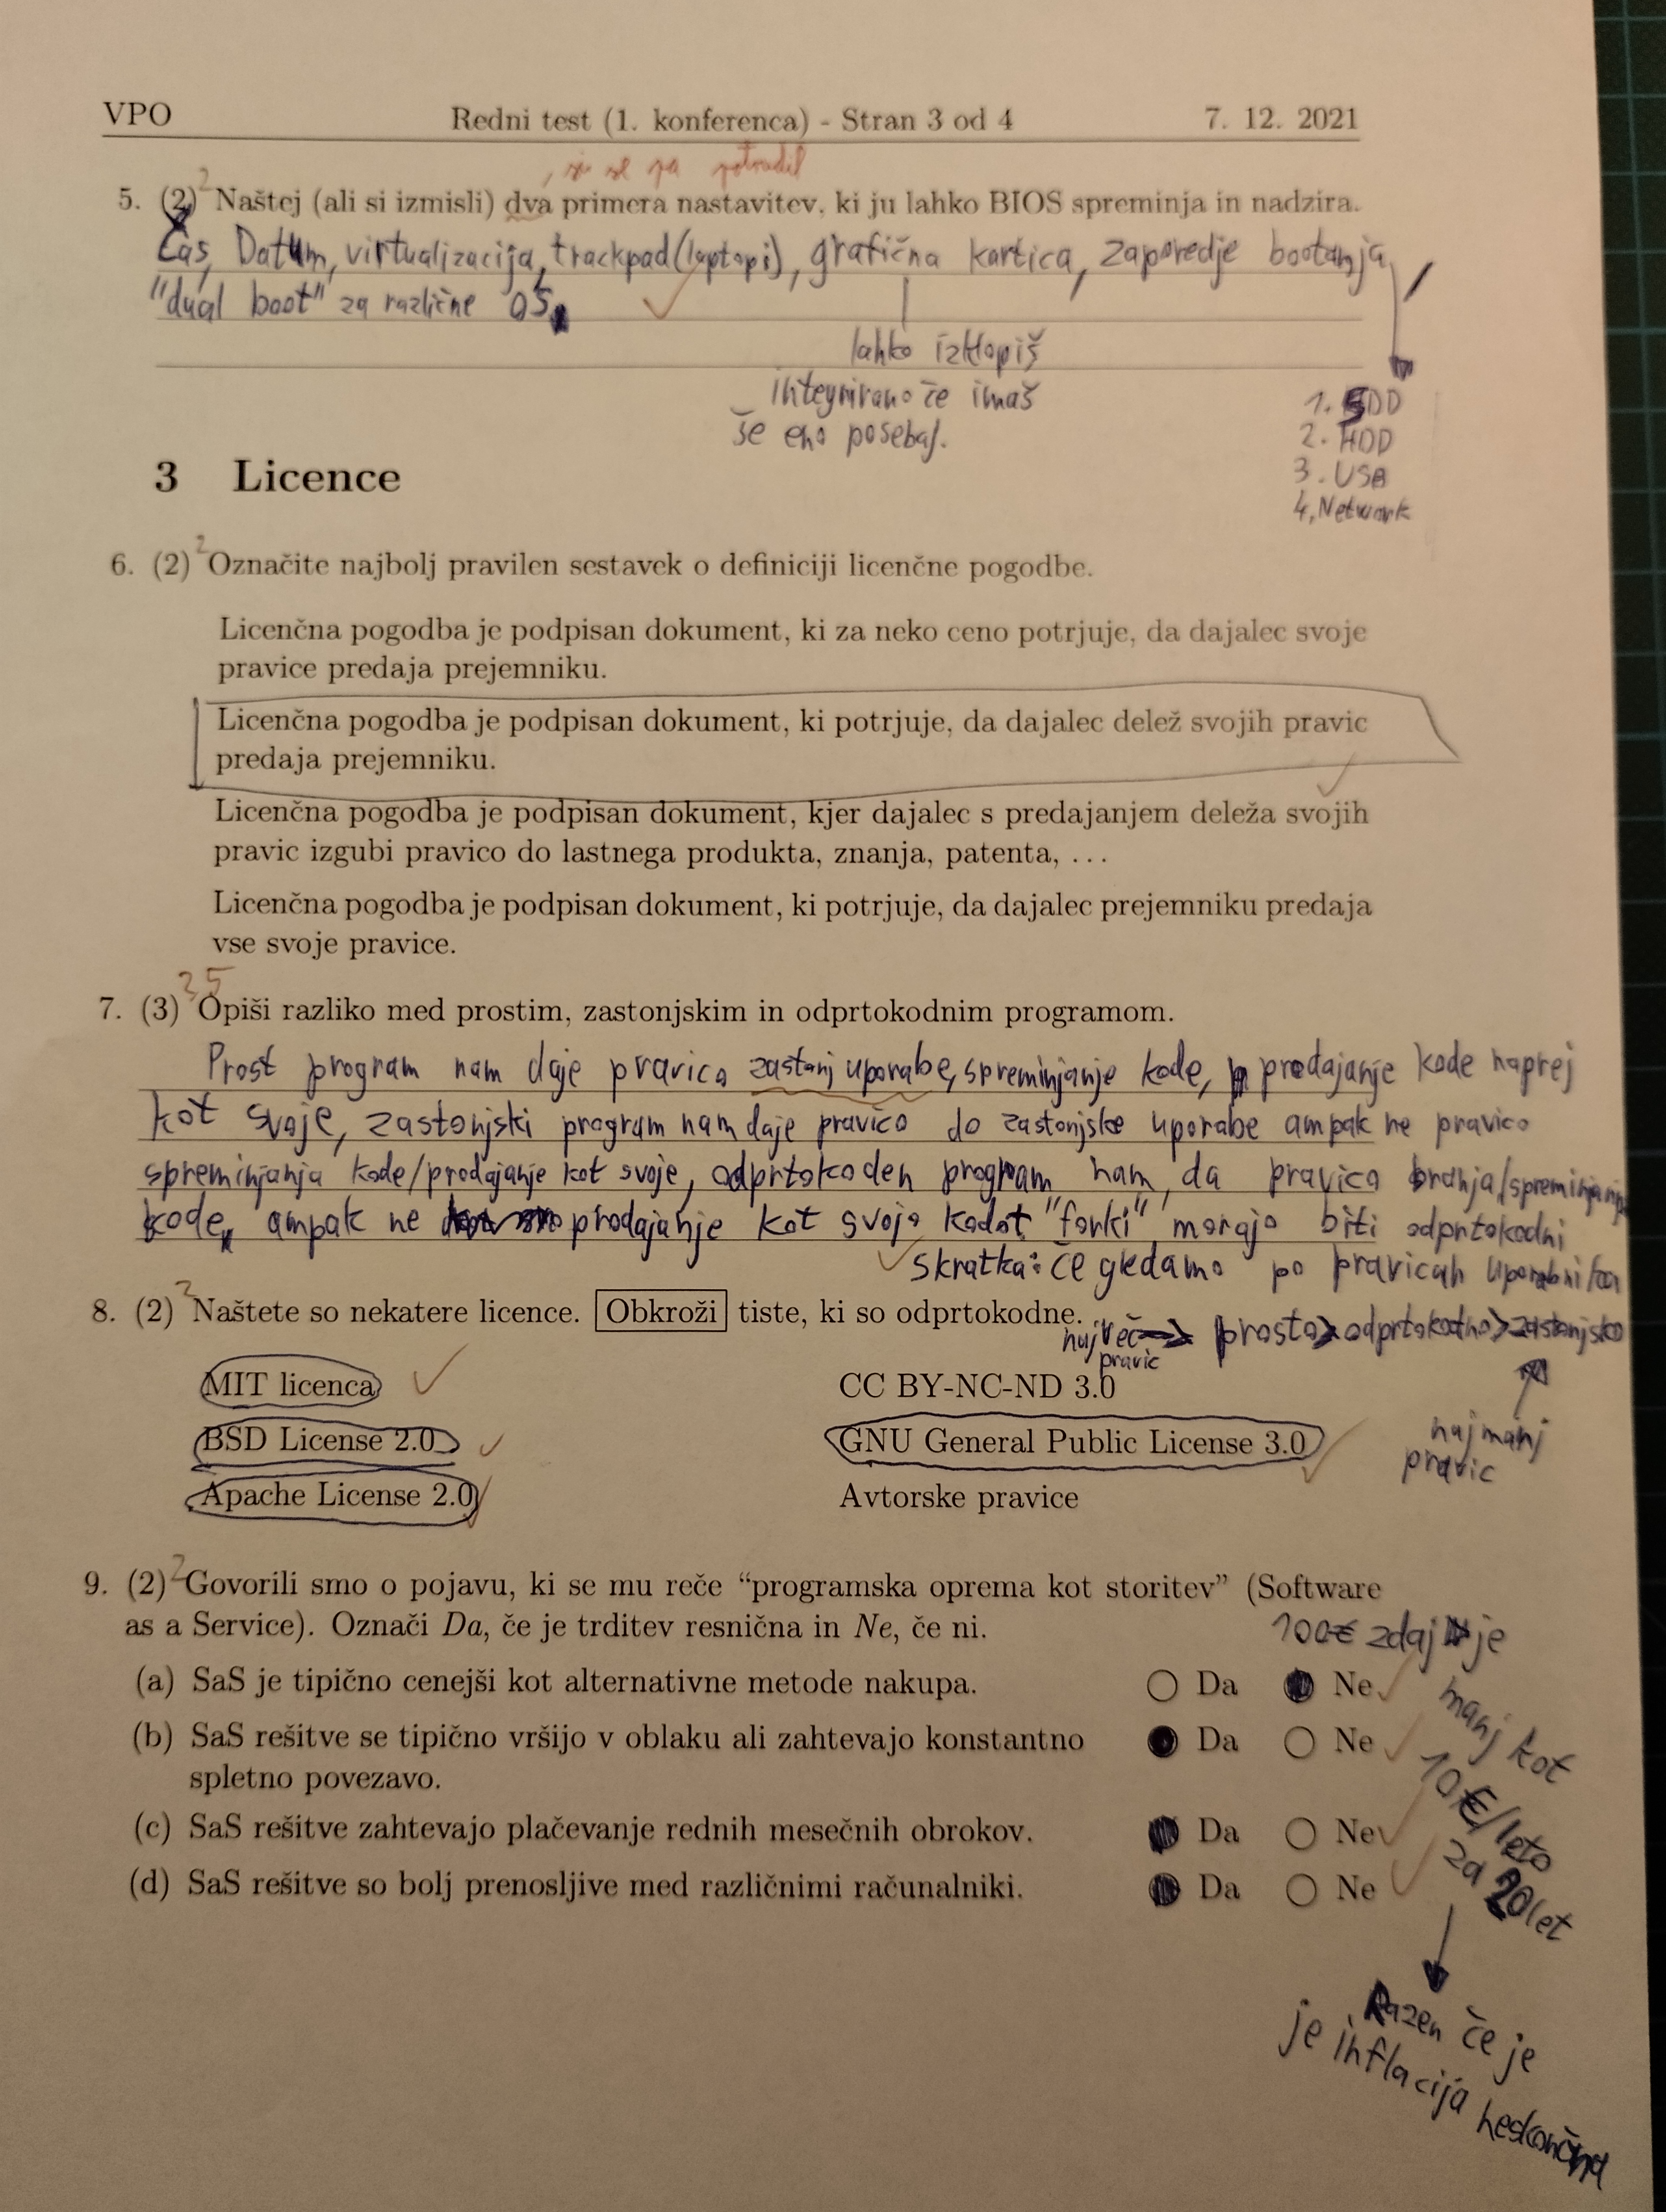 VPO Redni test (1. konferenca) - Stran 3 od 4 7. 12. 2021
, si se pa potrudil
5. (2) 2 Naštej (ali si izmisli) dva primera nastavitev, ki ju lahko BIOS spreminja in nadzira.
Čas, Datum, virtualizacija, trackpad(laptopi), grafična kartica, zaporedje bootanja,
"dual boot" za različne OS.
lahko izklopiš
integrirano če imaš
še eno posebaj.
1. SDD
2. HDD
3. USB
4. Network
3 Licence
6. (2) 2 Označite najbolj pravilen sestavek o definiciji licenčne pogodbe.
Licenčna pogodba je podpisan dokument, ki za neko ceno potrjuje, da dajalec svoje
pravice predaja prejemniku.
Licenčna pogodba je podpisan dokument, ki potrjuje, da dajalec delež svojih pravic
predaja prejemniku.
Licenčna pogodba je podpisan dokument, kjer dajalec s predajanjem deleža svojih
pravic izgubi pravico do lastnega produkta, znanja, patenta, ...
Licenčna pogodba je podpisan dokument, ki potrjuje, da dajalec prejemniku predaja
vse svoje pravice.
7. (3) Opiši razliko med prostim, zastonjskim in odprtokodnim programom.
Prost program nam daje pravico zastonj uporabe, spreminjanje kode, prodajanje kode naprej
kot svoje, zastonjski program nam daje pravico do zastonjske uporabe ampak ne pravico
spreminjanja kode/prodajanje kot svoje, odprtokoden program nam da pravico branja/spreminjanja
kode, ampak ne prodajanje kot svojo kodo "forki" morajo biti odprtokodni
skratka: če gledamo po pravicah
8. (2) 2 Naštete so nekatere licence. Obkroži tiste, ki so odprtokodne.
največ → prosto > odprtokodno > zastonjsko
pravic
MIT licenca CC BY-NC-ND 3.0
BSD License 2.0 GNU General Public License 3.0
najmanj
pravic
Apache License 2.0 Avtorske pravice
9. (2) 2 Govorili smo o pojavu, ki se mu reče “programska oprema kot storitev” (Software
as a Service). Označi Da, če je trditev resnična in Ne, če ni.
(a) SaS je tipično cenejši kot alternativne metode nakupa. Da Ne
(b) SaS rešitve se tipično vršijo v oblaku ali zahtevajo konstantno Da Ne
spletno povezavo.
(c) SaS rešitve zahtevajo plačevanje rednih mesečnih obrokov. Da Ne
(d) SaS rešitve so bolj prenosljive med različnimi računalniki. Da Ne
100€ zdaj je
manj kot
10€/leto
za 20 let
Razen če je
je inflacija neskončna